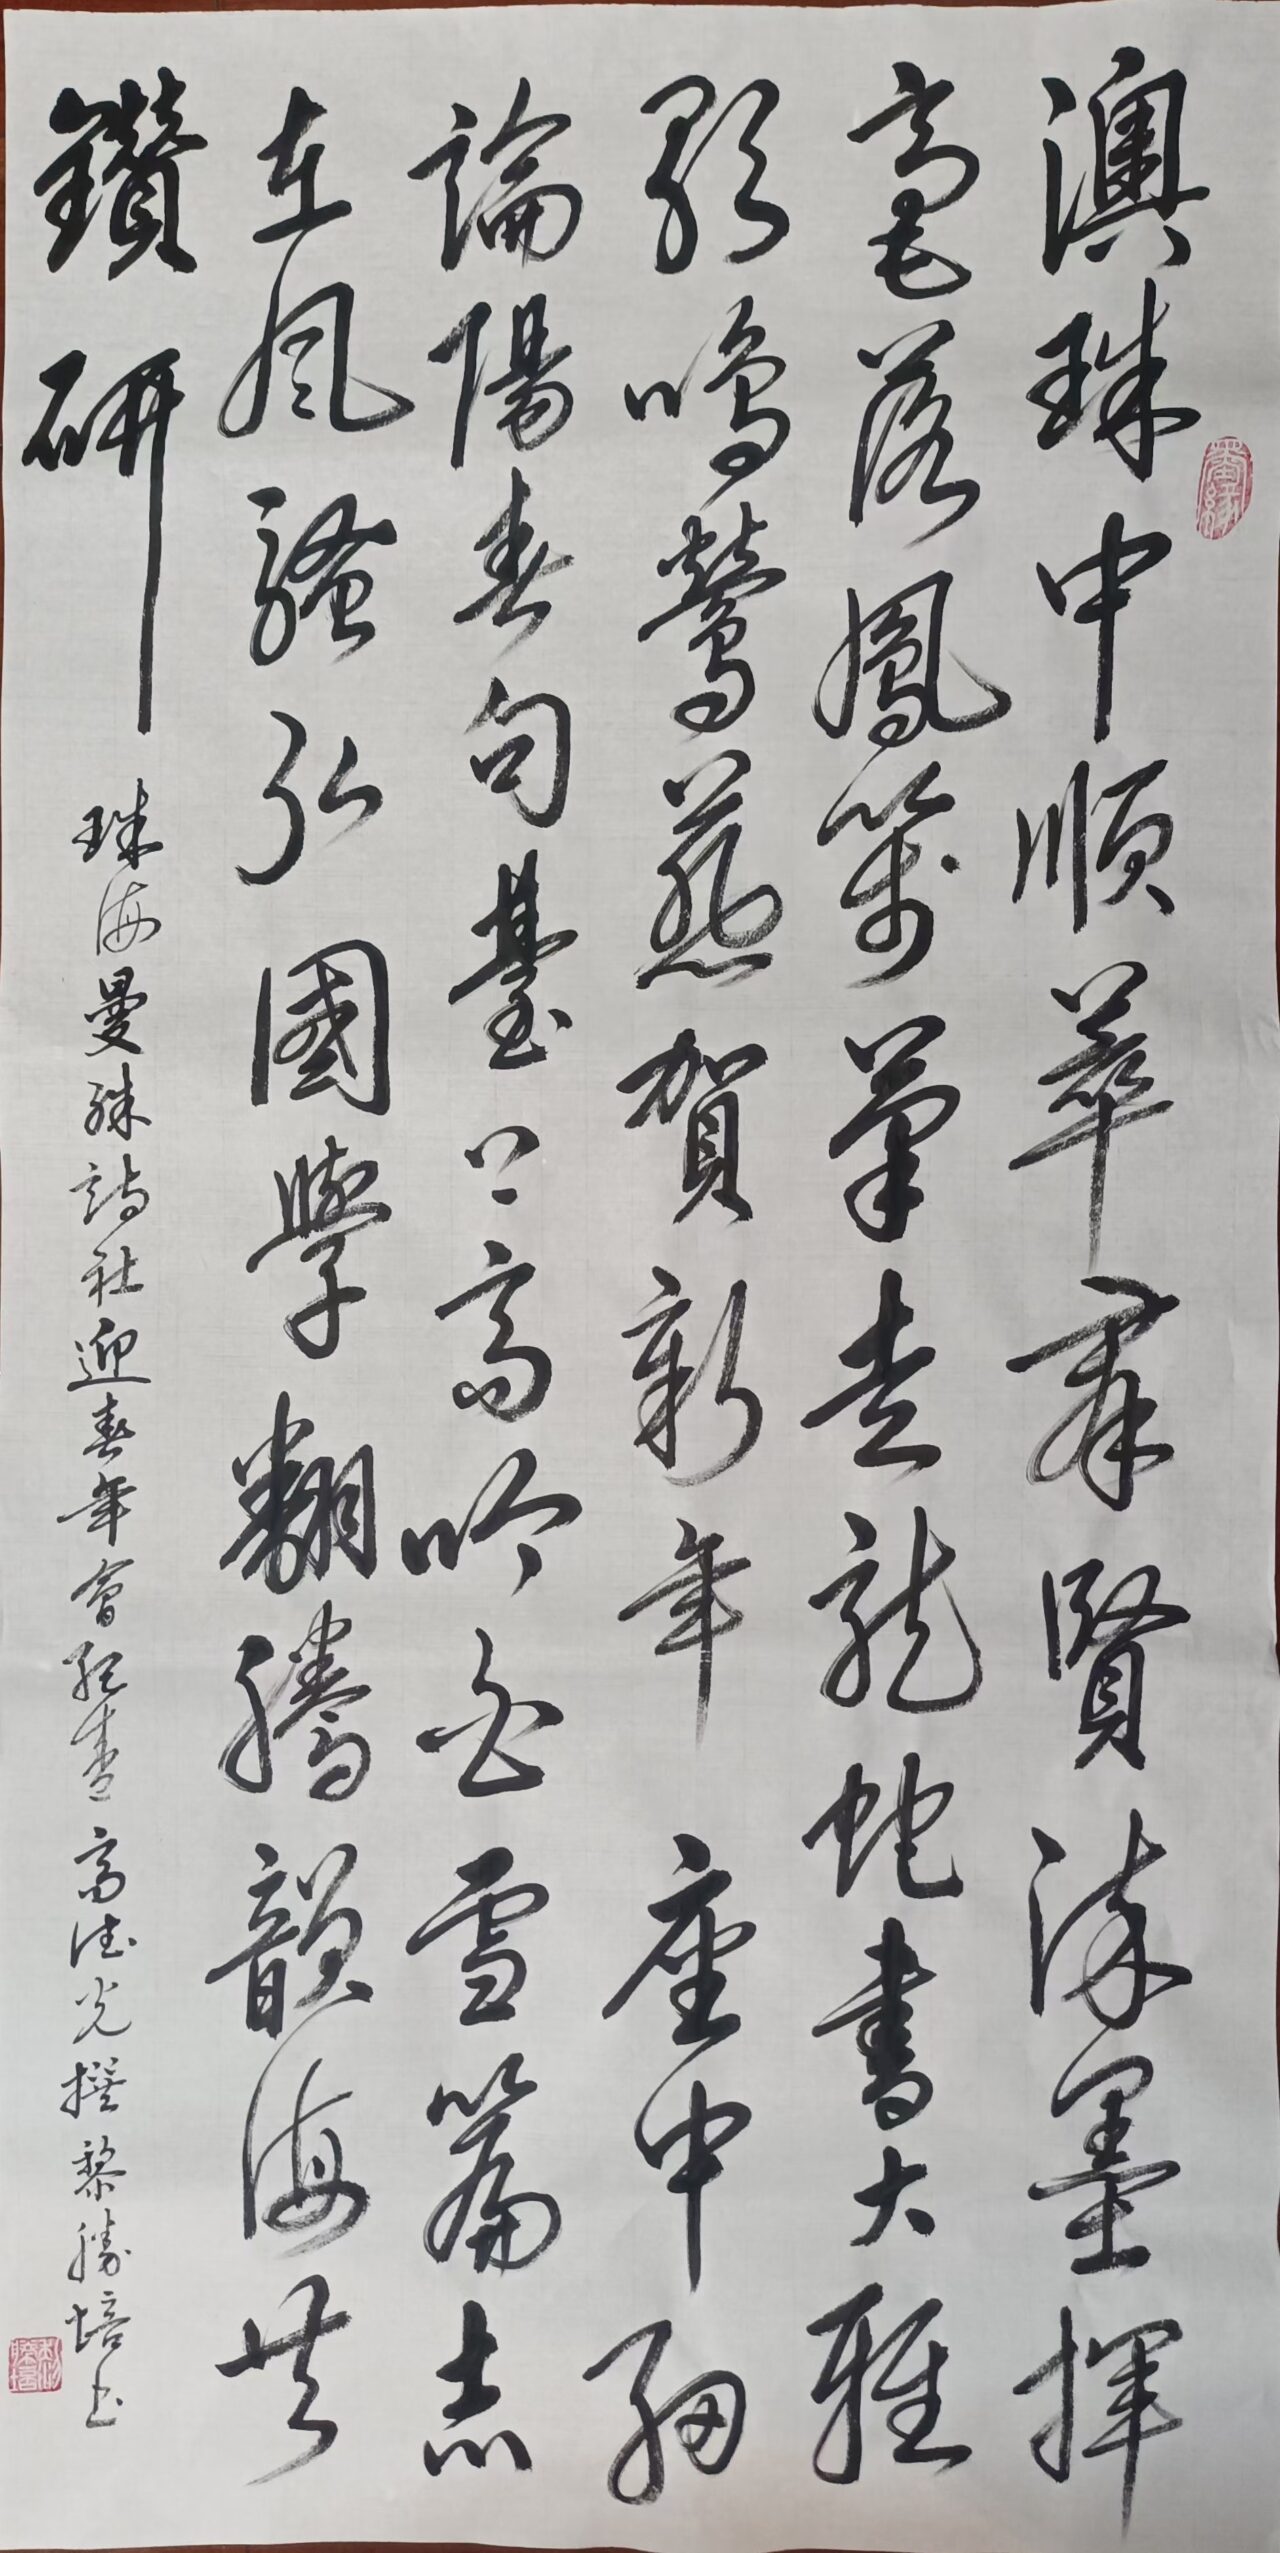 澳珠中順萃群賢沫墨揮
毫落鳳箋筆走龍蛇書大雅
歌鳴鶯燕賀新年座中細
論陽春句臺上高吟白雪篇志
在風騷弘國學翻騰韻海共
鑽研
珠海曼殊詩社迎春年會紀盛高德光撰黎勝培书
墨緣
黎勝培